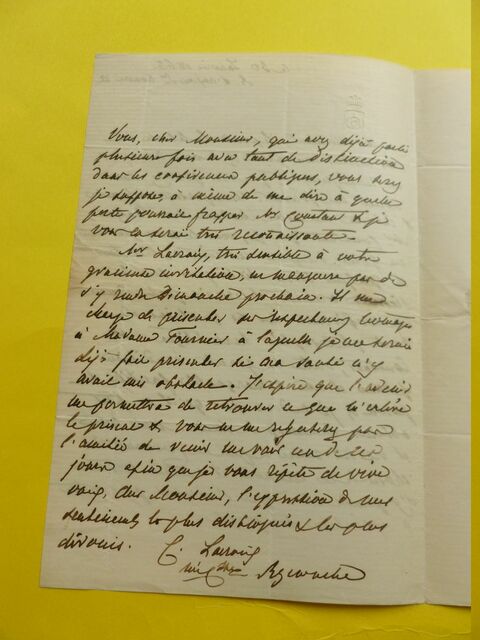 Vous, cher Monsieur, qui avez déjà parlé
plusieurs fois avec tant de distinction
dans les conférences publiques, vous serez
je suppose, à même de me dire à quelle
porte pourrait frapper Mr Constant & je
vous en serai très reconnaissante.
Mr Lacroix, très sensible à votre
gracieuse invitation, ne manquera pas de
s'y rendre Dimanche prochain. Il me
charge de présenter ses respectueux hommages
à Madame Fournier à laquelle je me serais
déjà fait présenter si ma santé n'y
avait mis obstacle. J'espère que l'avenir
me permettra de retrouver ce que m'enlève
le présent & vous me
l'amitié de venir me voir un de ces
jours afin que je vous répète de vive
voix, cher Monsieur, l'expression de mes
sentiments les plus distingués & les plus
dévoués.
C. Lacroix
née